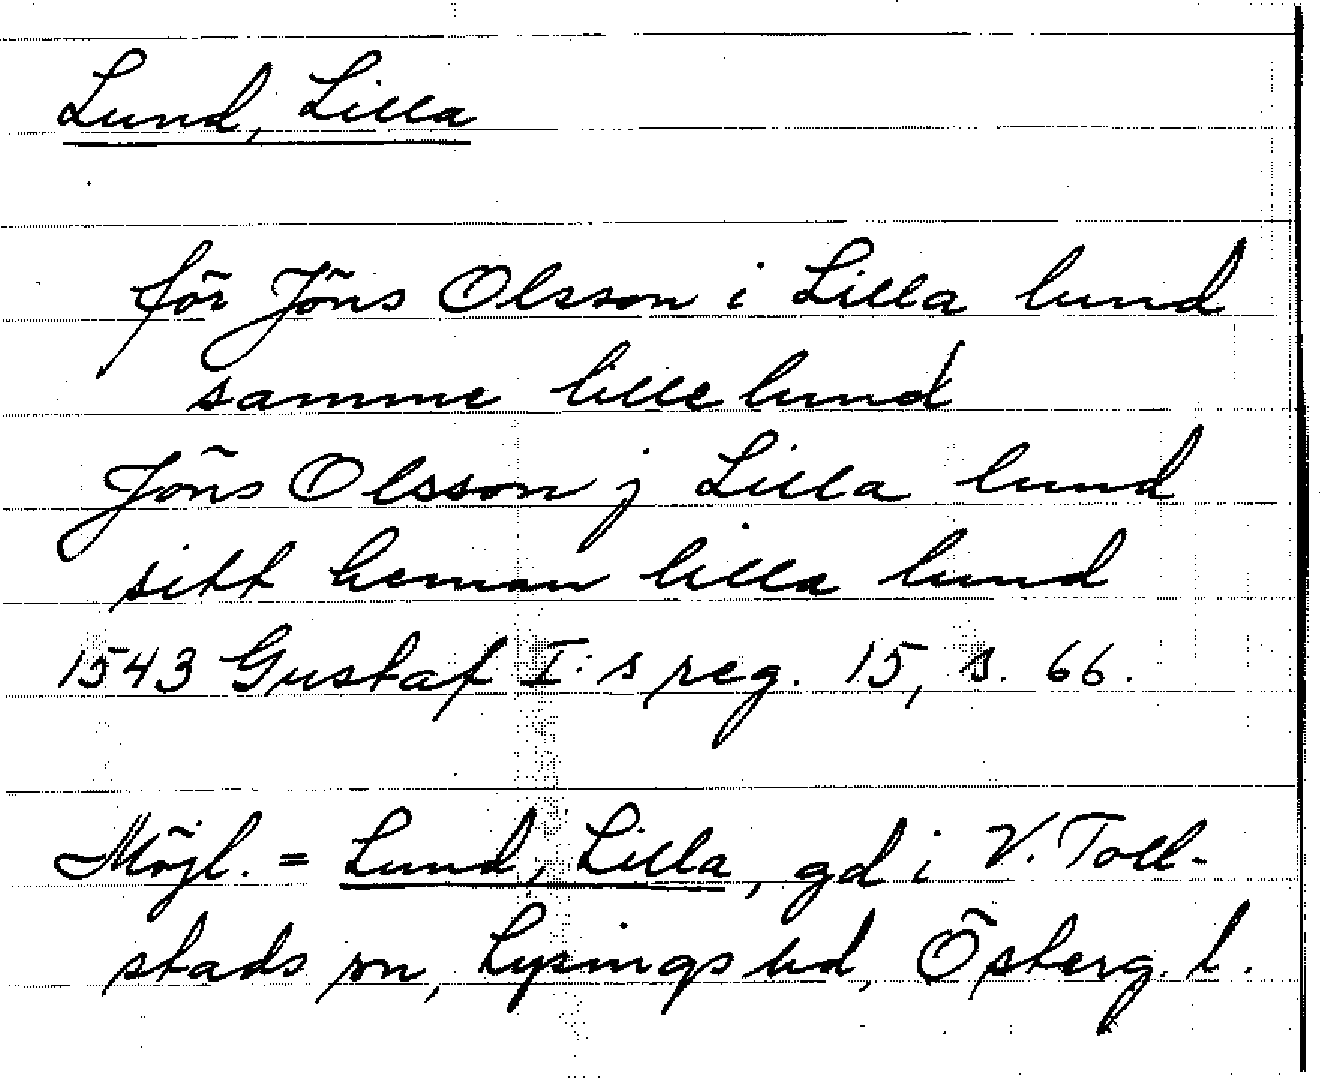 Lund, Lilla
för Jöns Olsson i Lilla lund
samme lille lund
Jöns Olsson j Lilla lund
sitt heman lilla lund
1543 Gustaf I:s reg. 15, s. 66.
Möjl. = Lund, Lilla, gd i V. Toll-
stads sn, Lysings hd, Österg. l.